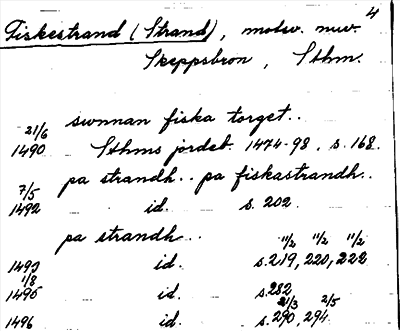 4
Fiskestrand (Strand), motsv. nuv.
Skeppsbron, Sthm.
sunnan fiska torget..
21/6
1490 Sthms jordeb. 1474-98, s. 168.
pa strandh.. pa fiskastrandh..
7/5
1492 id. s. 202.
pa strandh..
11/2 11/2 11/2
1493 id. s. 219, 220, 222
1/8
1495 id. s. 282
21/3 2/5
1496 id. s. 290, 294